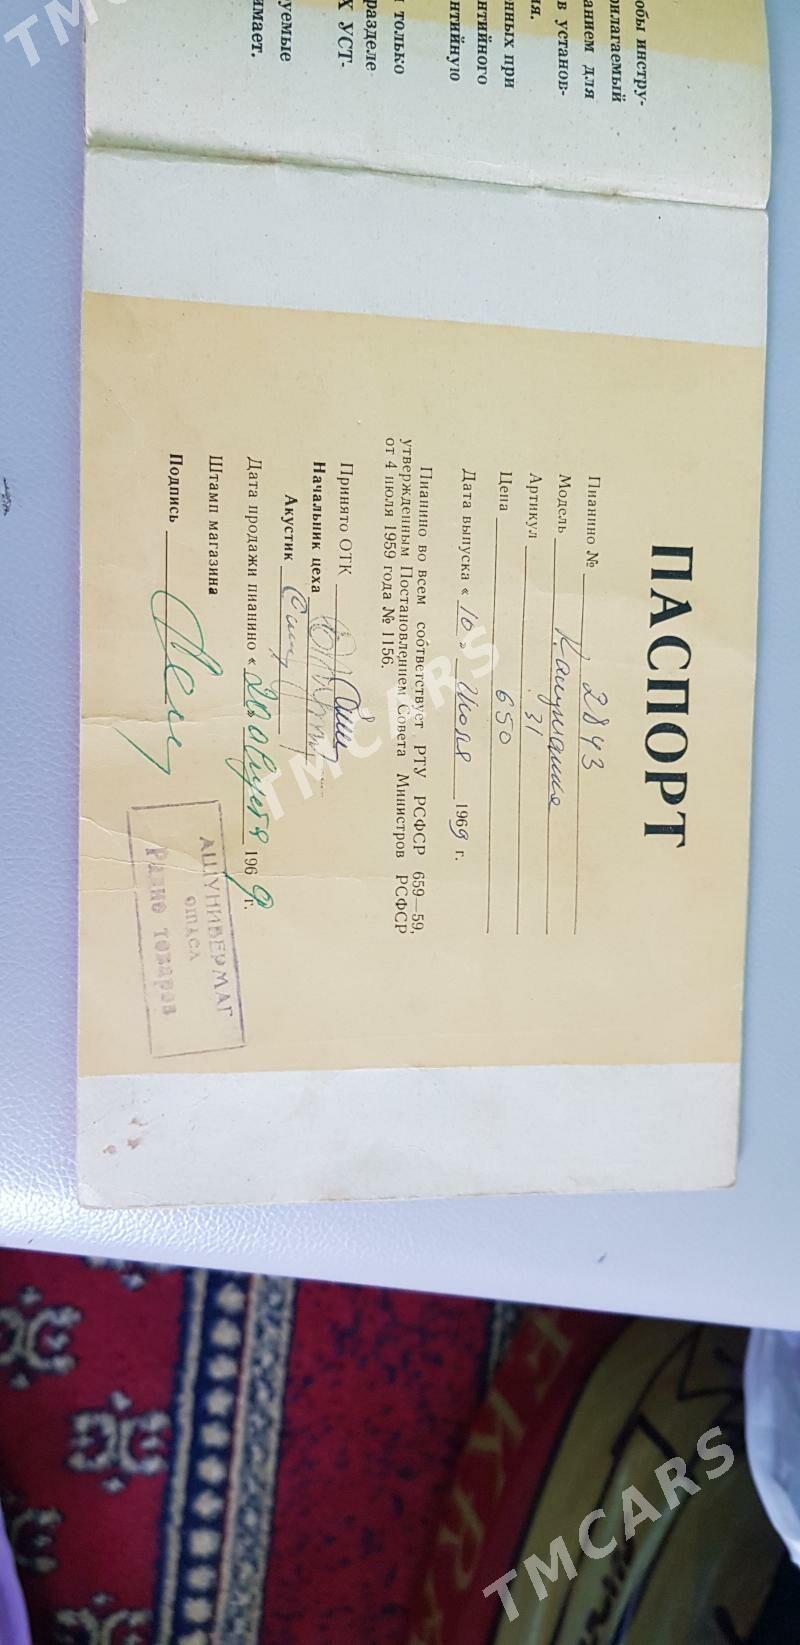 обы инстру-
рилагаемый
анием для
в установ-
ия.
нных при
нтийного
нтийную
только
разделе
Х УСТ-
уемые
имает.
ПАСПОРТ
Пианино № 2843
Модель
Артикул 31
Цена 650
Дата выпуска « 16 » июля 1969 г.
Пианино во всем соответствует РТУ РСФСР 659—59,
утвержденным Постановлением Совета Министров РСФСР
от 4 июля 1959 года № 1156.
Принято ОТК
Начальник цеха
Акустик
Дата продажи пианино « 20 » августа 1969 г.
Штамп магазина
Подпись
АШУНИВЕРМАГ
отдел
Радио товаров
TMCARS
TMCARS
TMCARS
TMCARS
EKRA